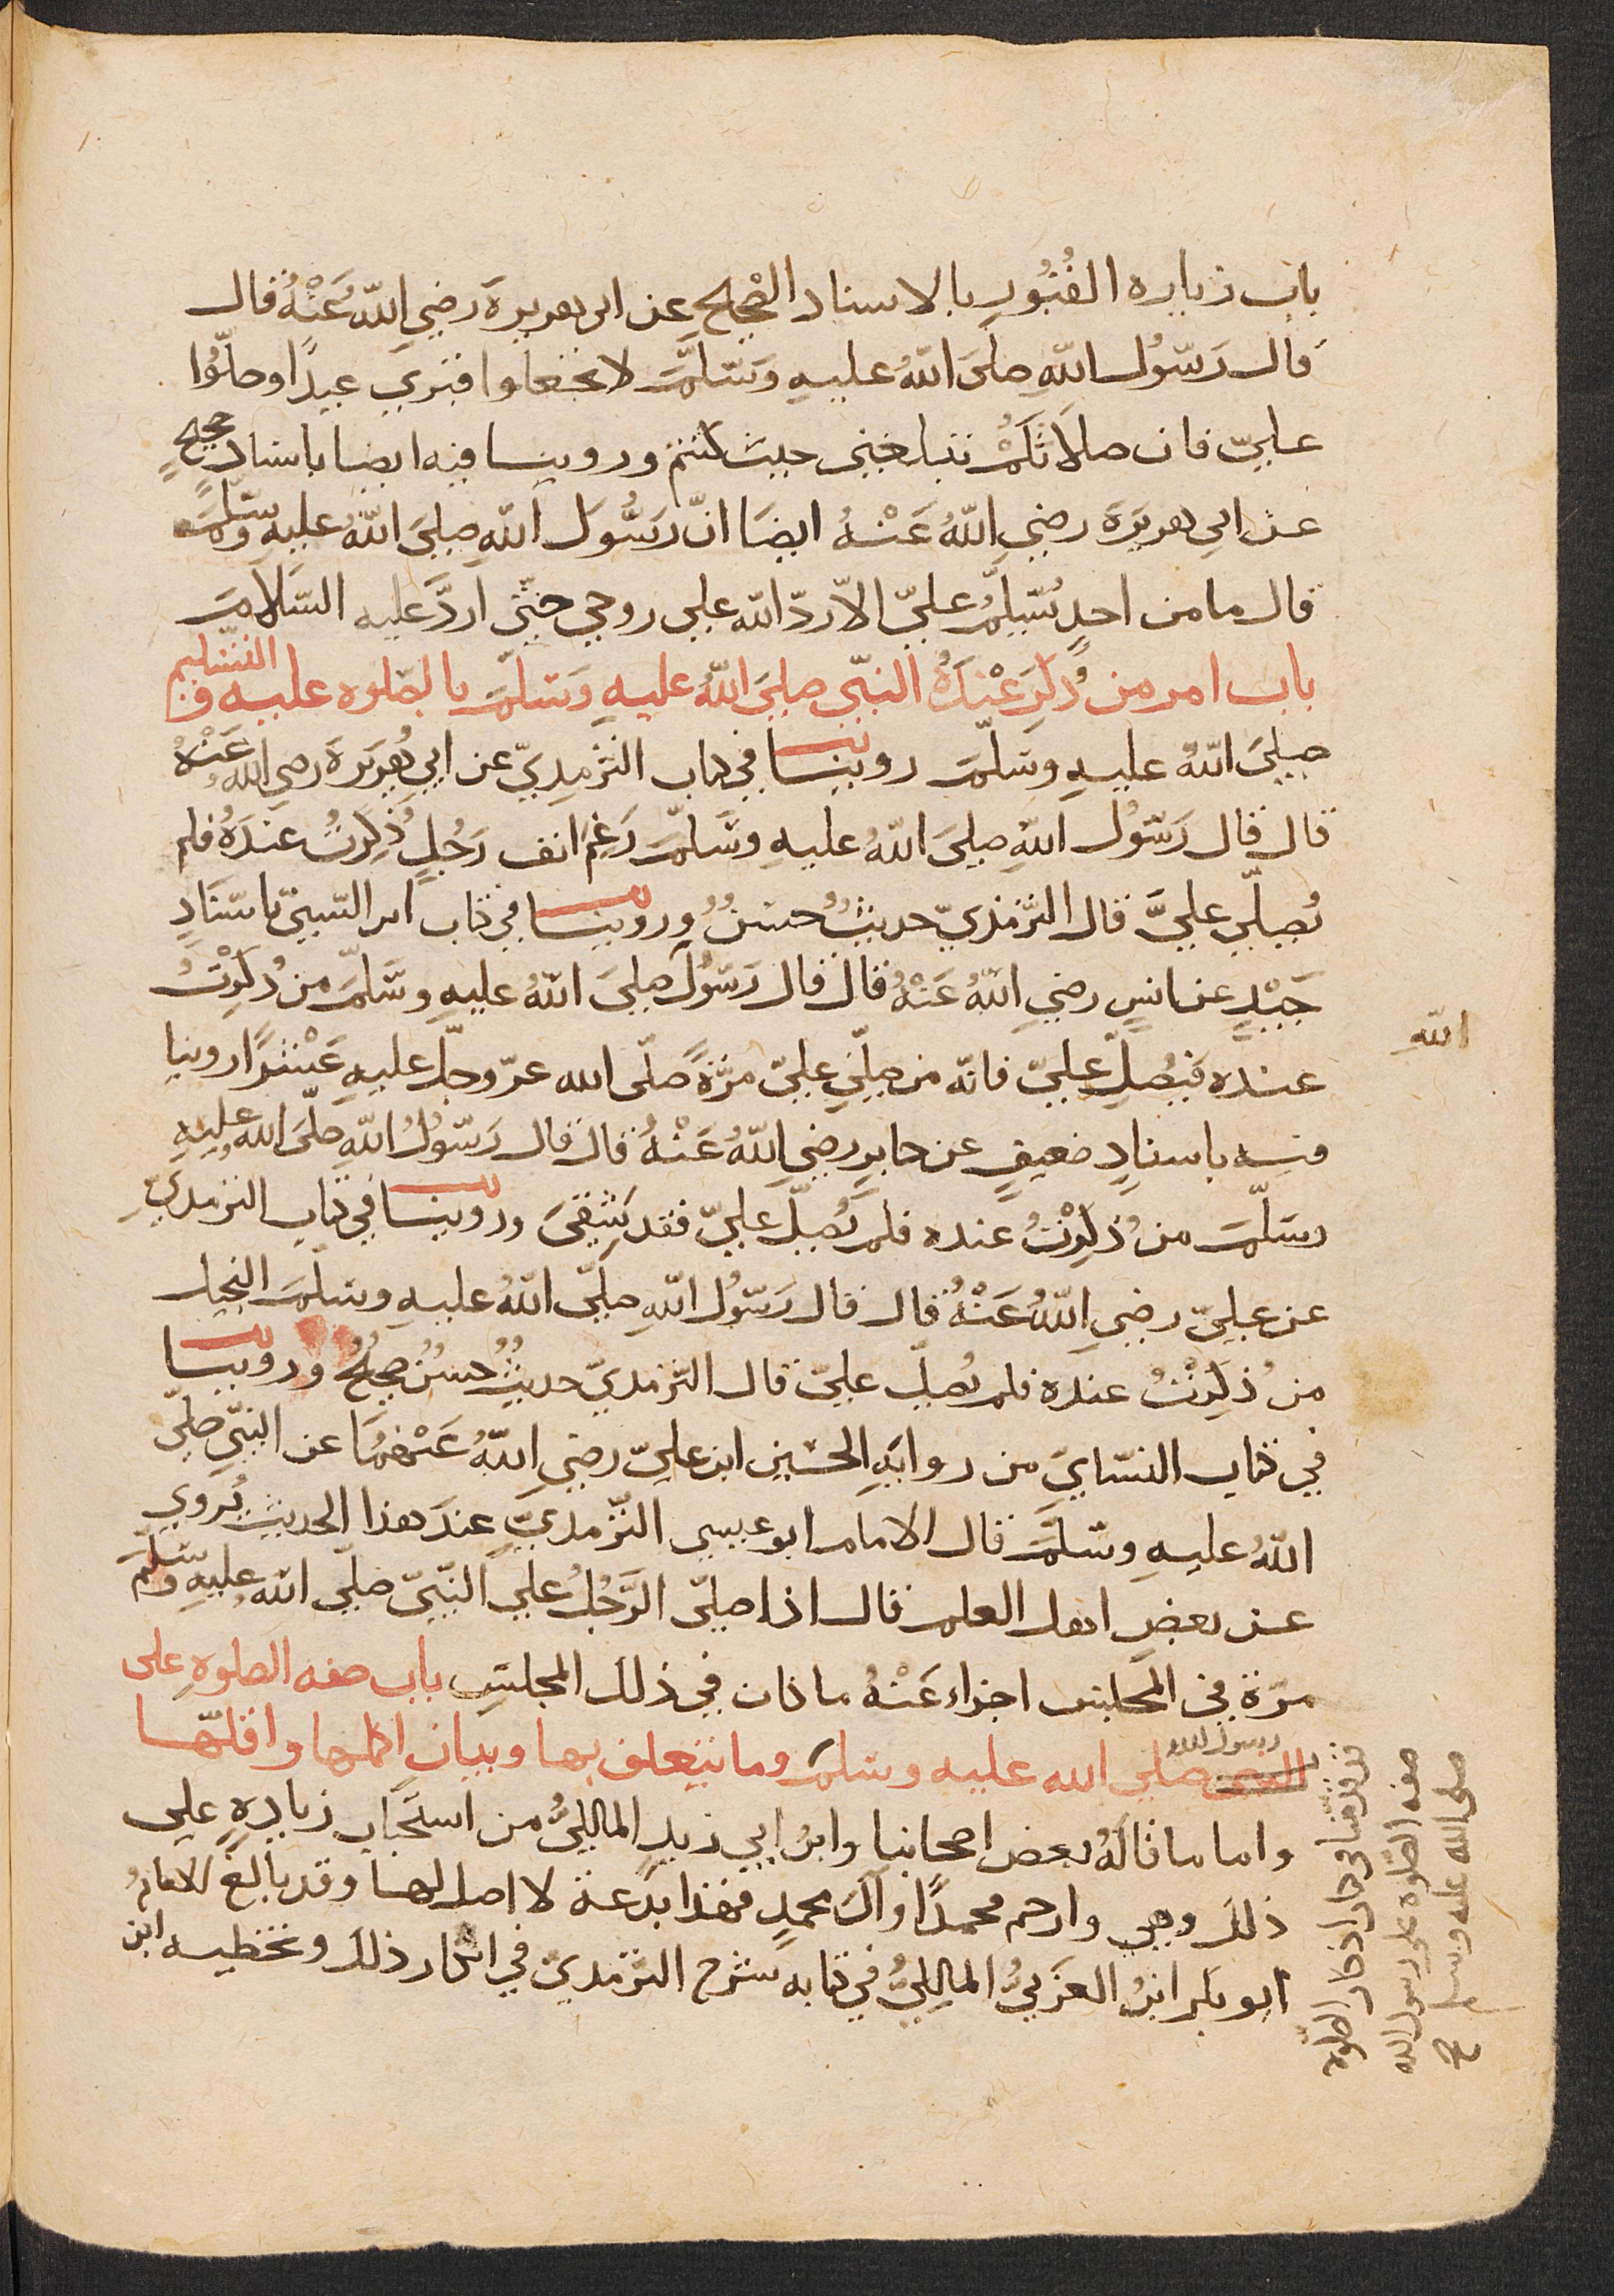 باب زيارة القُبُورِ بالاسناد الصّحيح عن ابى هريرةَ رضي اللّهُ عَنْهُ قال
قال رَسُول اللّهِ صلى اللّهُ عليهِ وَسَلَّمَ لا تجعلوا قبري عيدًا وصلّوا
عليّ فان صلاتكُمْ تبلغني حيث كنتم وروينا فيه ايضا باسنادٍ صحيحٍ
عن ابي هريرَةَ رضي اللّهُ عَنْهُ ايضَا انّ رَسُولَ اللّهِ صلى اللّهُ عليهِ وسلّمَ
قال ما من احدٍ يُسَلِّمُ عليّ الاّ ردّ اللّه علي روحي حتّى اردَّ عليه السّلامَ
باب امر من ذُكِرَ عِنْدَهُ النبّى صلى اللّهُ عليهِ وَسَلّمَ بالصّلوه عليه والتسليم
صلى اللّهُ عليهِ وسَلّمَ روينا في كتاب الترْمِذِيّ عن ابي هُرَيْرَةَ رضي اللّه عَنْهُ
قال قال رَسُول اللّهِ صلى اللّهُ عليهِ وسَلّمَ رَغِمَ انف رَجُلٍ ذُكِرتُ عندَهُ فلم
يُصلّي عليَّ قال الترْمِذيّ حديثٌ حسَنٌ وروينا في كتاب ابن السّنيّ باسْنَادٍ
جَيّدٍ عن انسٍ رضي اللّهُ عَنْهُ قال قال رَسُول صلى اللّهُ عليهِ وسَلّمَ من ذُكِرْتُ
اللّهِ
عندَه فليُصلِّ عليّ فانّه من صلّى عليّ مرَّةً صلّى الله عزّ وجلّ عليهِ عَشْرًا روينا
فيه باسنادٍ ضعيفٍ عن جابرٍ رضي اللّهُ عَنْهُ قال قال رَسُولُ اللّهِ صلّى اللّه عليهِ
وسَلّمَ من ذُكِرْتُ عنده فلم يُصلّ عليّ فقد شَقِيَ وروينا في كتاب الترمذيّ
عن عليّ رضي اللّهُ عَنْهُ قال قال رَسُول اللّهِ صلّى اللّهُ عليهِ وسَلّمَ البخيل
من ذُكِرْتُ عنده فلم يُصلّ عليّ قال الترّمذيّ حديثٌ حسَنٌ صحيحٌ وروينا
في كتاب النسّايَ من روايَةِ الحسَين ابن عليّ رضي اللّهُ عَنْهُمَا عن النبّيِ صلّى
اللّهُ عليهِ وسَلَّمَ قال الامام ابو عيسى التّرمذيّ عندَ هذا الحديث يُروي
عن بعضِ اهل العلم قال اذا صلّى الرَّجُلُ علي النّبيّ صلّى اللّه عليهِ وسَلّمَ
مرّة في المجلس اجزاء عَنْهُ ما كان في ذلك المجلسِ باب صفه الصلوةِ على
النبى رسول الله صلى الله عليه وسلّم وما يتعلق بها وبيان اكملها واقلّها
واما ما قالَهُ بعض اصحابنا وابنُ ابي زيدٍ المالكِيُّ من استحَباب زيادةٍ علي
ذلكَ وهي وارحم محمدًا وآلَ محمدٍ فهذا بدعة لا اصل لها وقد بالغ الامامُ
ابو بكر ابنُ العَرَبيُّ المالِكِيُّ في كتابه شرح الترّمذيّ في انكار ذلكَ وتخطيه ابن
قد قدمنا في اذكار الصّلوة
صفه الصّلوة على رسول الله
صلى الله عليه وسلم